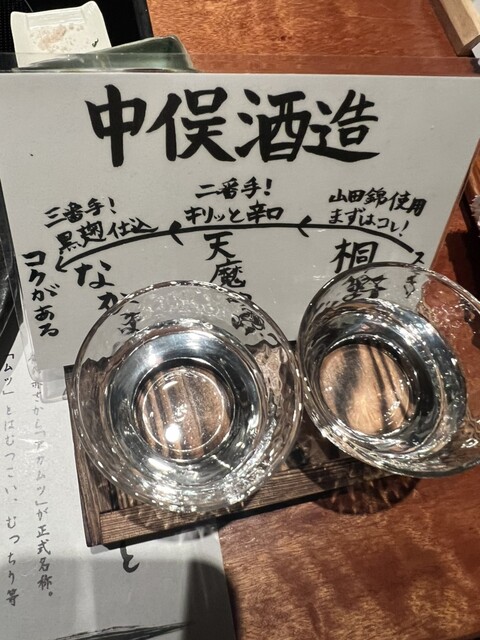 中俣酒造
山田錦使用
まずはコレ!
桐野
二番手!
キリッと辛口
天魔
三番手!
黒麹仕込
なか
コクがある
が正式名称。
「ムツ」とはむつこい、むっちり等
と